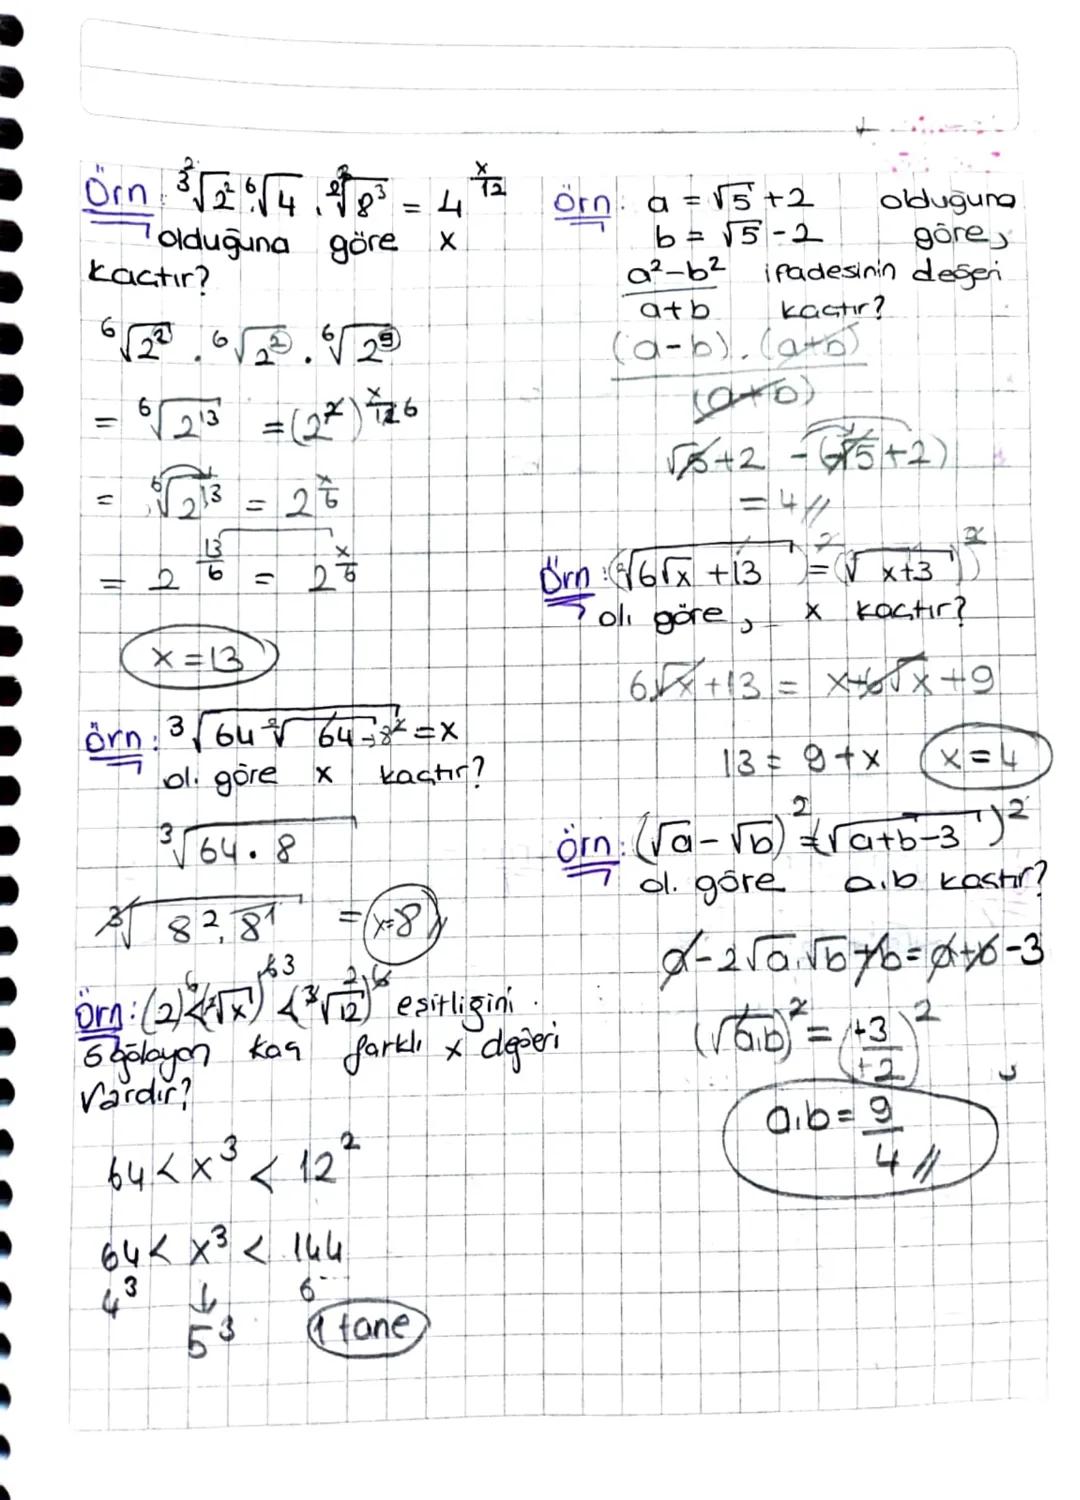 Örn: ³√2² ⁶√4 . ²√8³ = 4^(x/12)
olduğuna göre x
kaçtır?
⁶√2² . ⁶√2² . ⁶√2⁹
= ⁶√2¹³ = (2²)^(x/12) 6
= ⁶√2¹³ = 2^(x/6)
= 2^(13/6) = 2^(x/6)
x = 13
Örn: ³√64 √64 = x
ol. göre x kaçtır?
³√64 . 8
³√8² . 8¹ = x=8
Örn: (2)⁶ < (√x)⁶ < (³√12)⁶ eşitliğini
sağlayan kaç farklı x değeri
vardır?
64 < x³ < 12²
64 < x³ < 144
4³ ↓ 6
5³ 1 tane
Örn: a = √5 + 2 olduğuna
b = √5 - 2 göre,
a² - b² ifadesinin değeri
a+b kaçtır?
(a-b) . (a+b)
(a+b)
√5 + 2 - (√5 + 2)
= 4 //
Örn: (√6√x + 13)² = (√x + 3)²
ol. göre, x kaçtır?
6√x + 13 = x + 6√x + 9
13 = 9 + x x = 4
Örn: (√a - √b)² = (√a+b-3)²
ol. göre a.b kaçtır?
a - 2√a.√b + b = a + b - 3
(√a.b)² = (+3/+2)²
a.b = 9/4 //